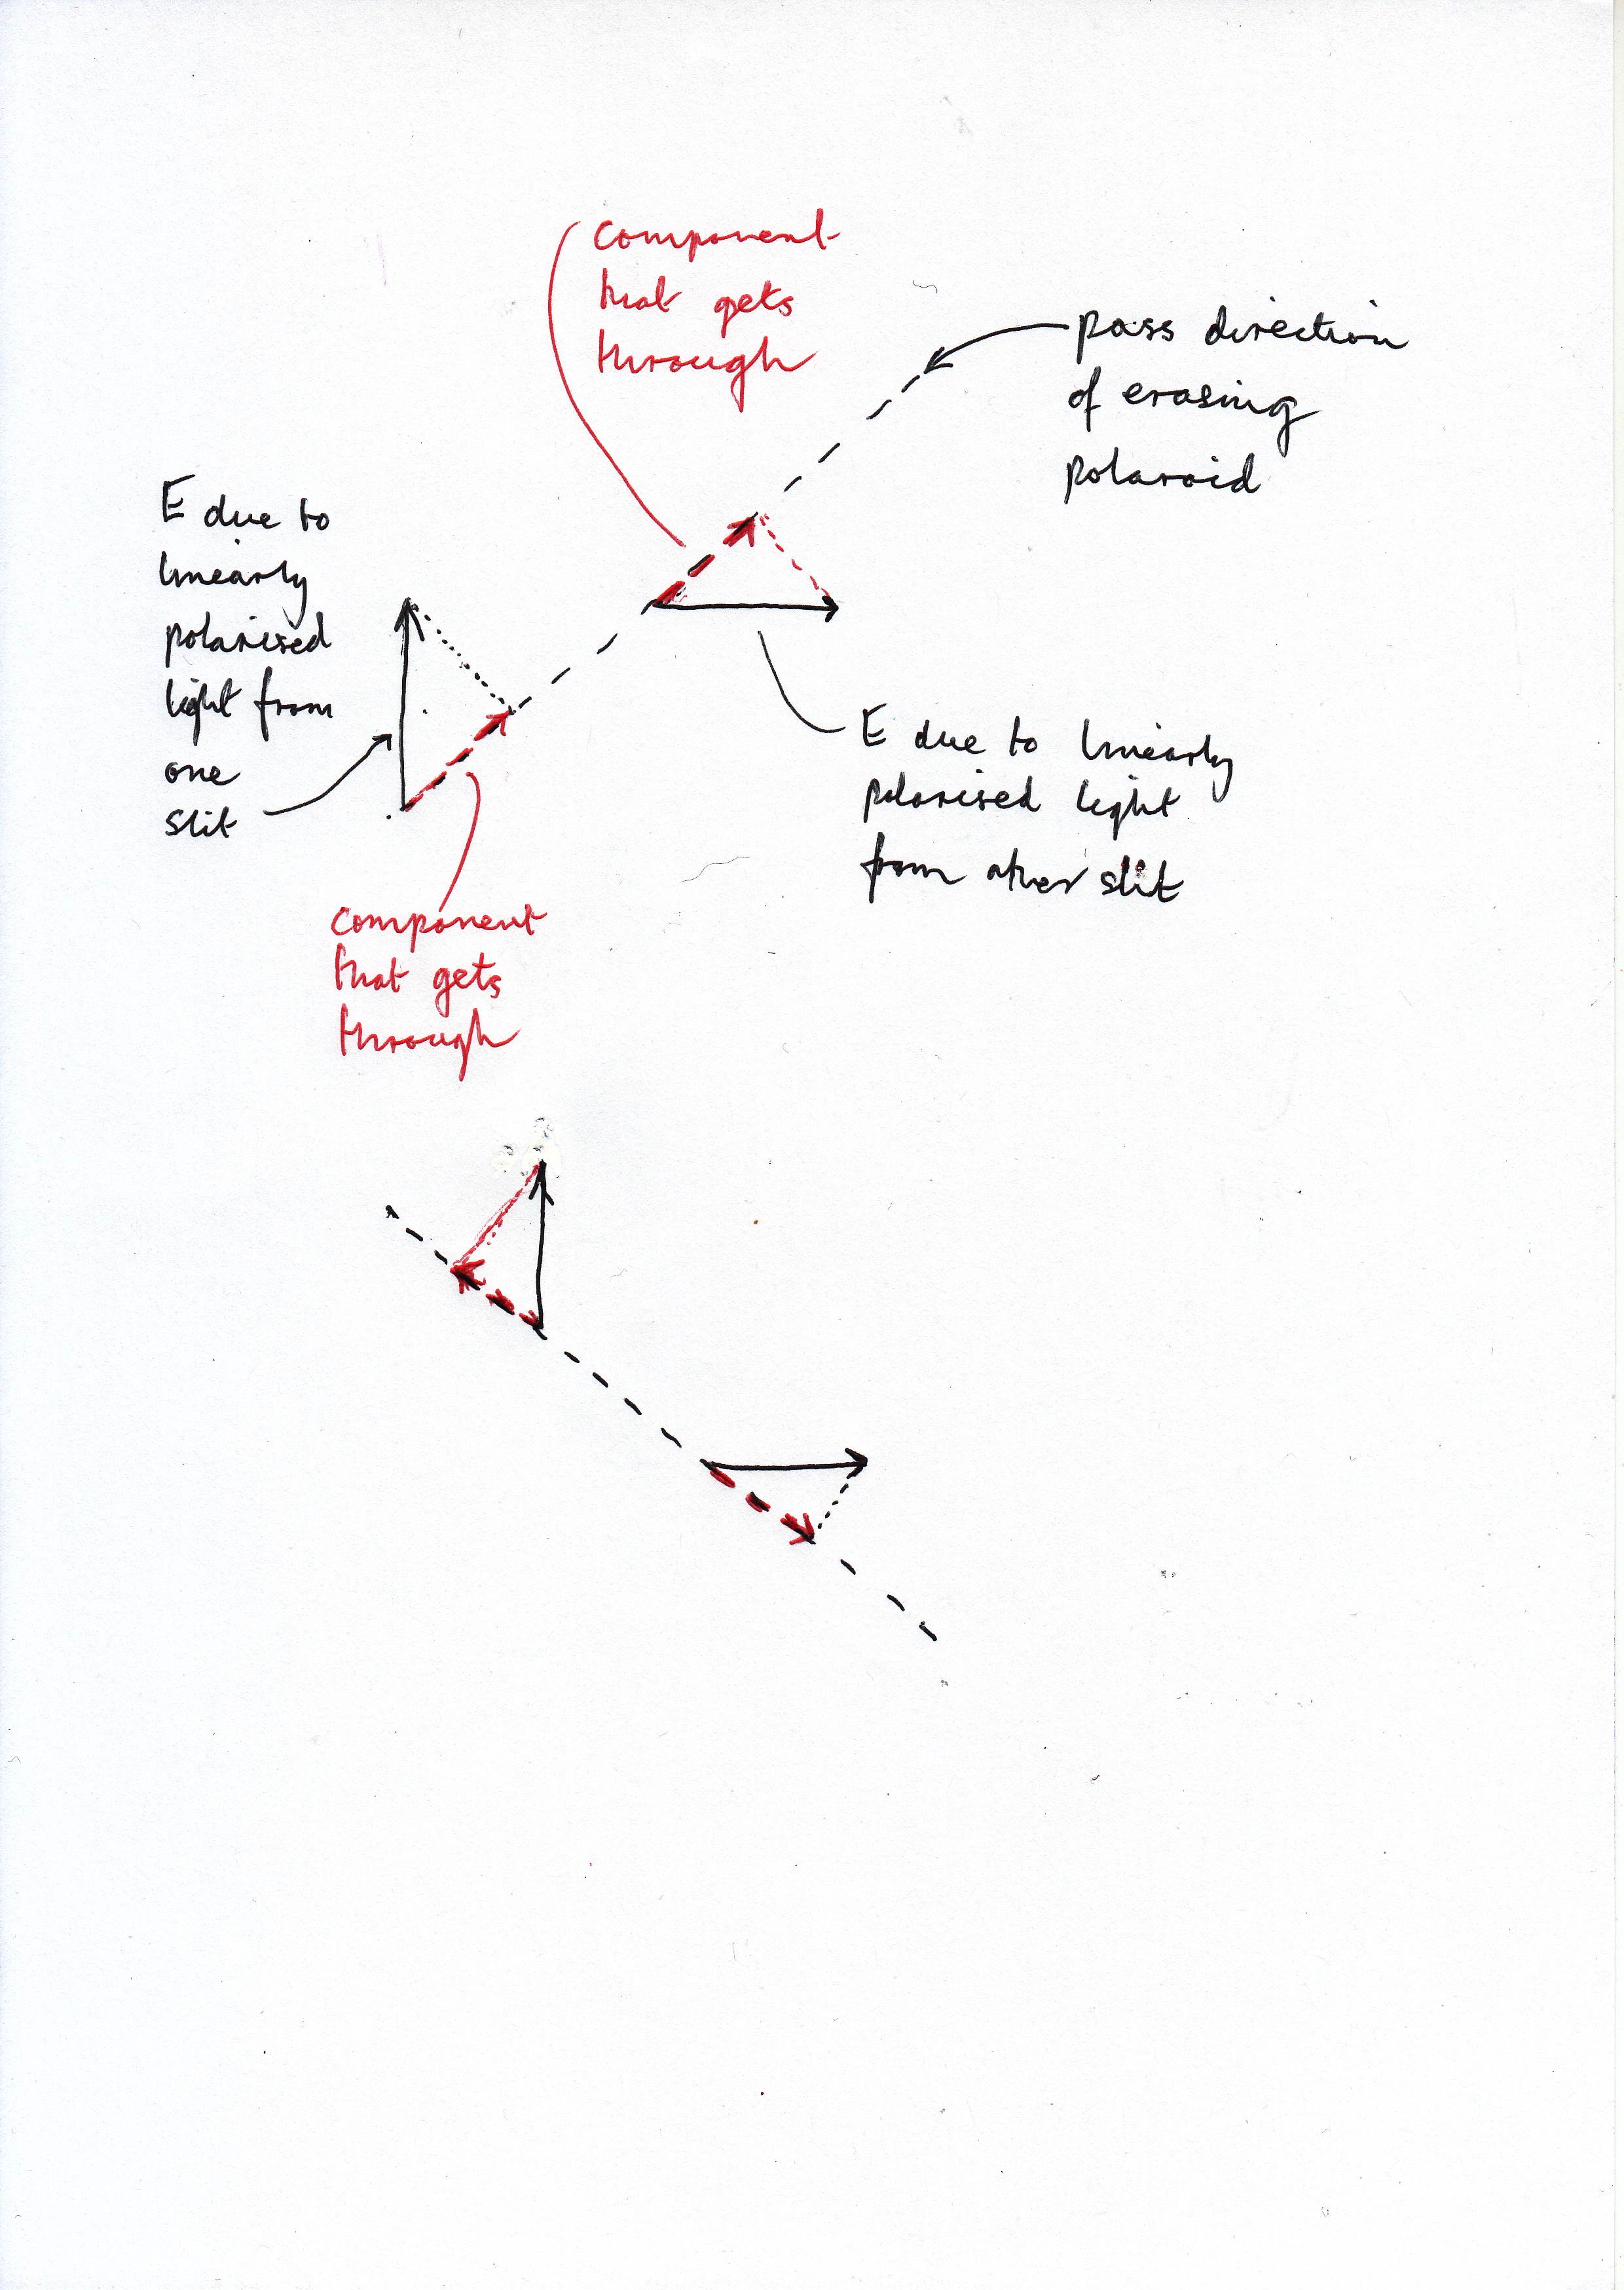 component
that gets
through
pass direction
of erasing
polaroid
E due to
linearly
polarised
light from
one
slit
E due to linearly
polarised light
from other slit
component
that gets
through